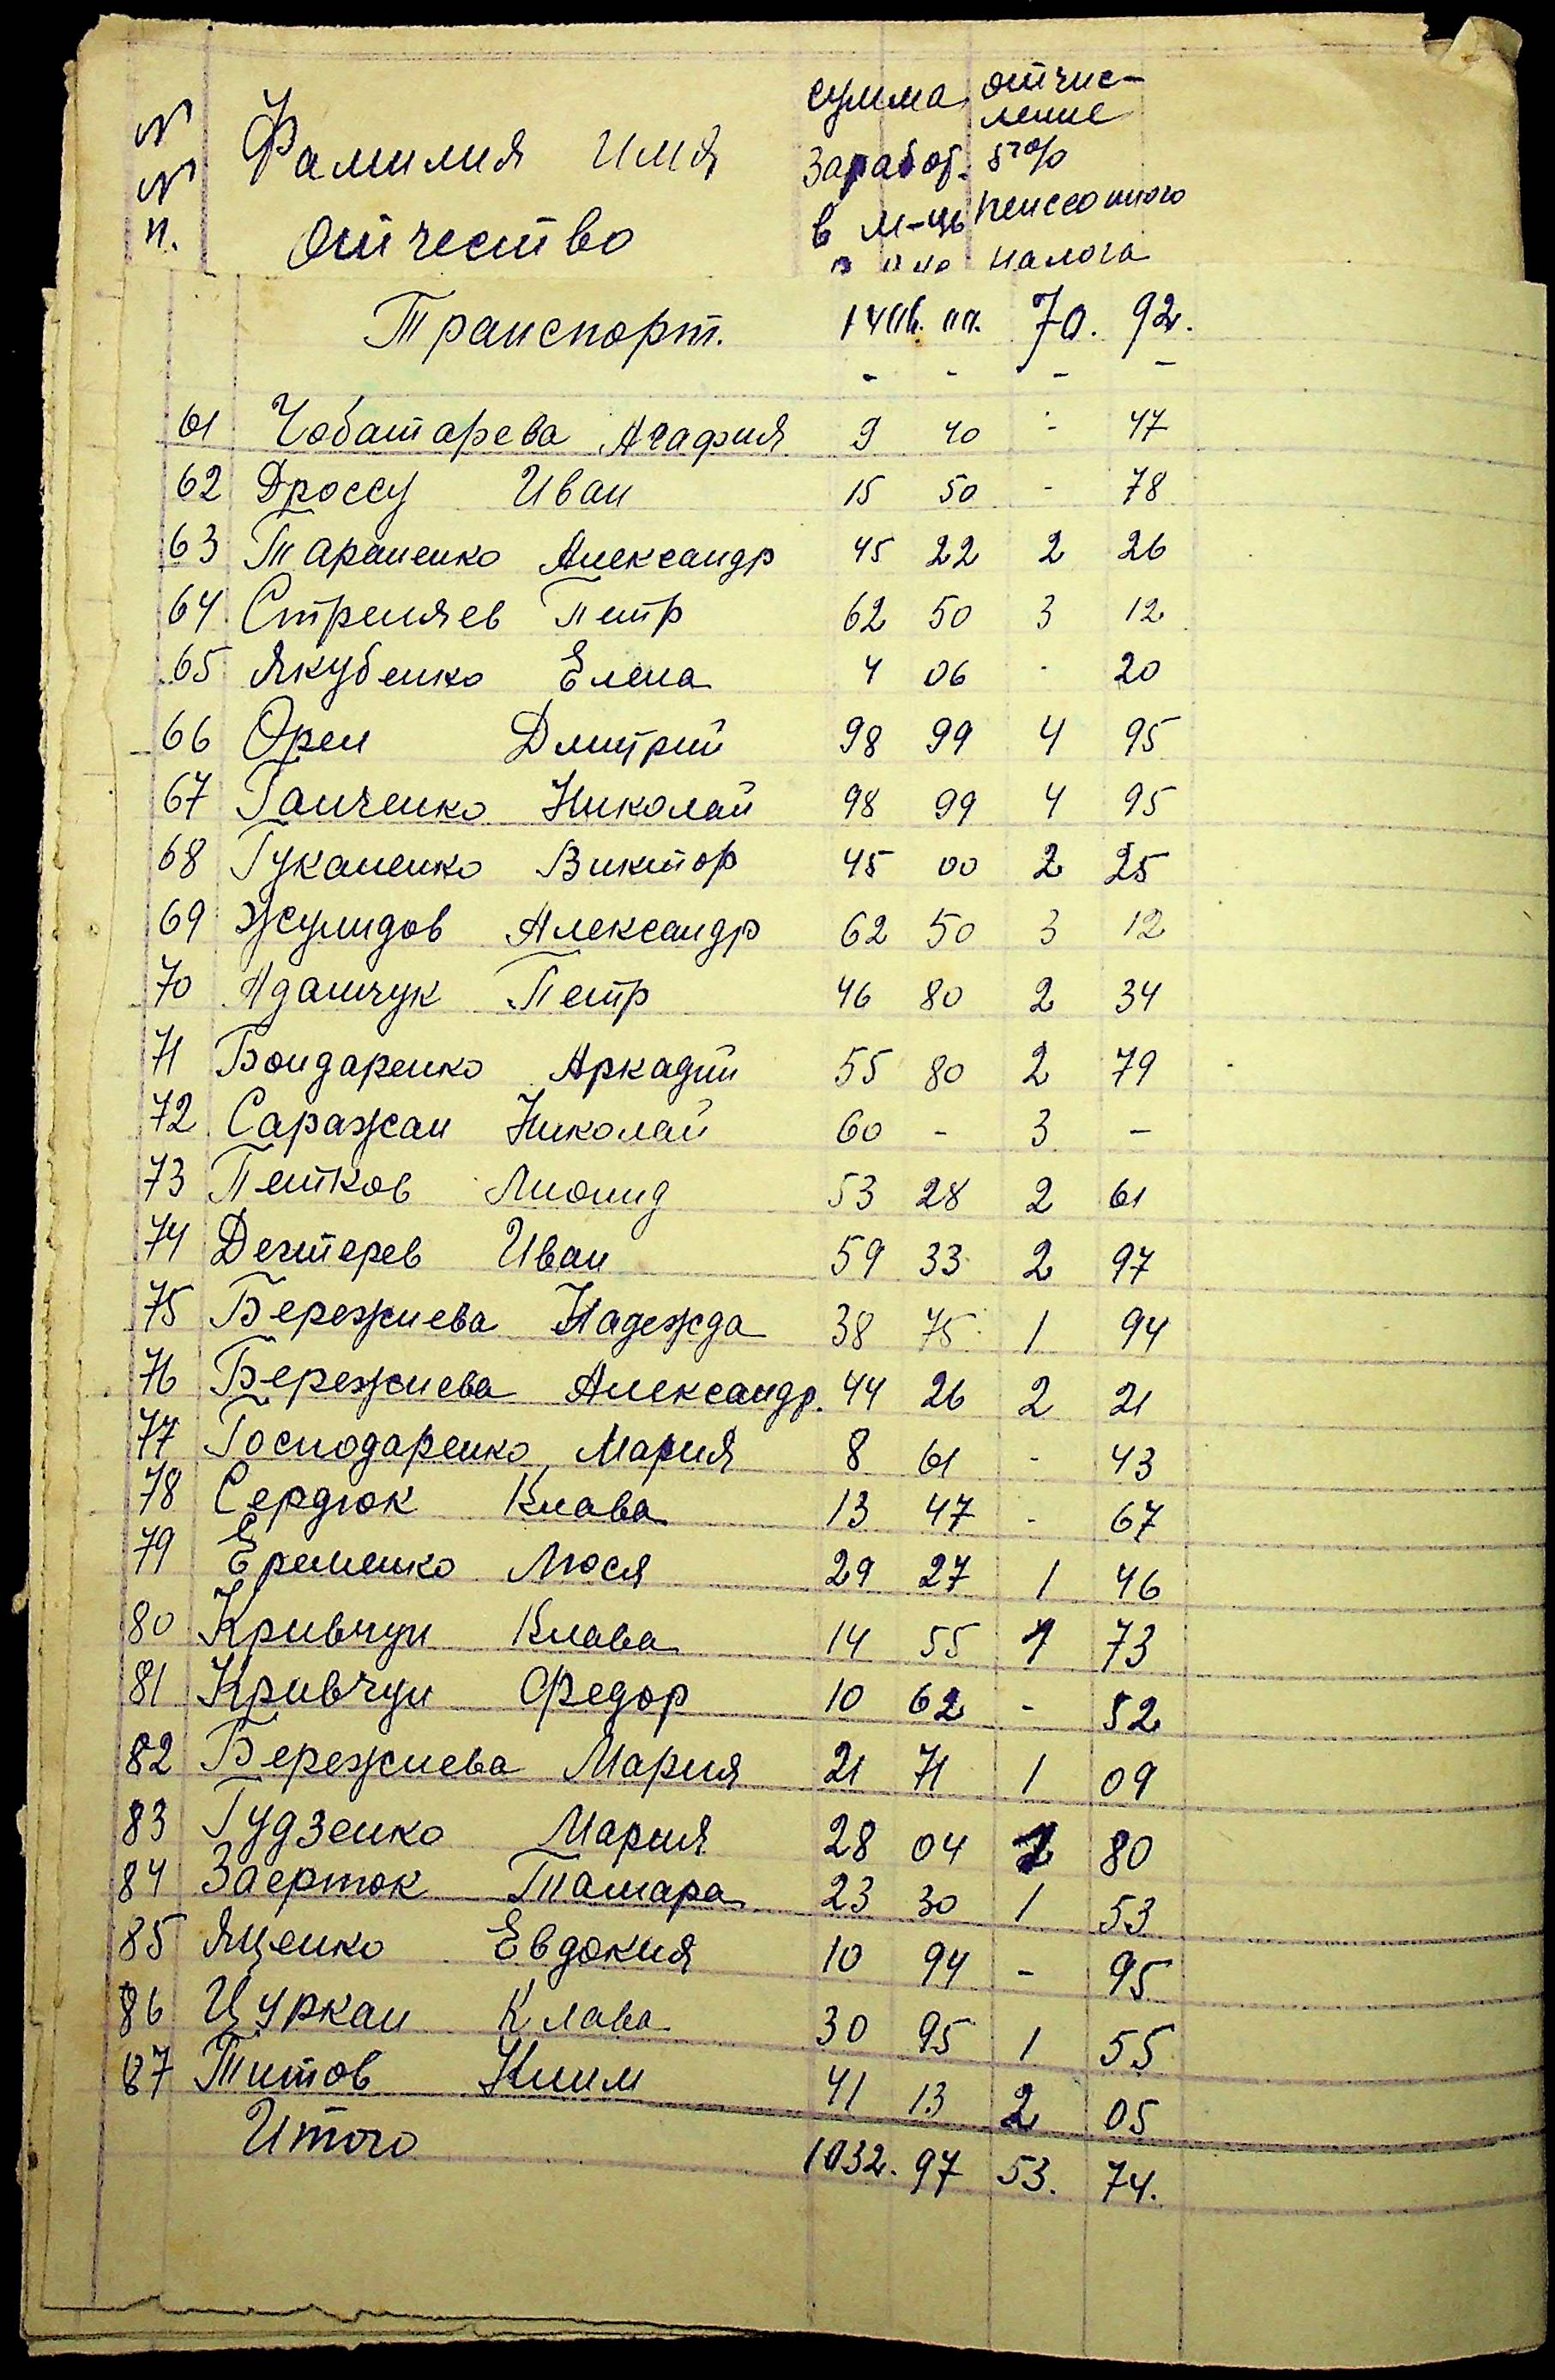 № № п. Фамилия Имя Отчество
сумма заработ. в м-це
отчис-
ление
5%
пенссонного
налога
Транспорт. 70. 92.
- - - -
61 Чобатарева Агафия 9 40 - 47
62 Дроссу Иван 15 50 - 78
63 Тараненко Александр 45 22 2 26
64 Стреляев Петр 62 50 3 12
65 Якубенко Елена 4 06 - 20
66 Орел Дмитрий 98 99 4 95
67 Ганченко Николай 98 99 4 95
68 Гуканенко Виктор 45 00 2 25
69 Жулидов Александр 62 50 3 12
70 Адамчук Петр 46 80 2 34
71 Бондаренко Аркадий 55 80 2 79
72 Саражан Николай 60 - 3 -
73 Петков Лионид 53 28 2 61
74 Дехтерев Иван 59 33 2 97
75 Бережнева Надежда 38 75 1 94
76 Бережнева Александр. 44 26 2 21
77 Господаренко Мария 8 61 - 43
78 Сердюк Клава 13 47 - 67
79 Еременко Люся 29 27 1 46
80 Кривчун Клава 14 55 1 73
81 Кривчун Федор 10 62 - 52
82 Бережнева Мария 21 71 1 09
83 Гудзенко Мария 28 04 1 80
84 Заерток Тамара 23 30 1 53
85 Яценко Евдокия 10 94 - 95
86 Цуркан Клава 30 95 1 55
87 Титов Клим 41 13 2 05
Итого 1032. 97 53. 74.